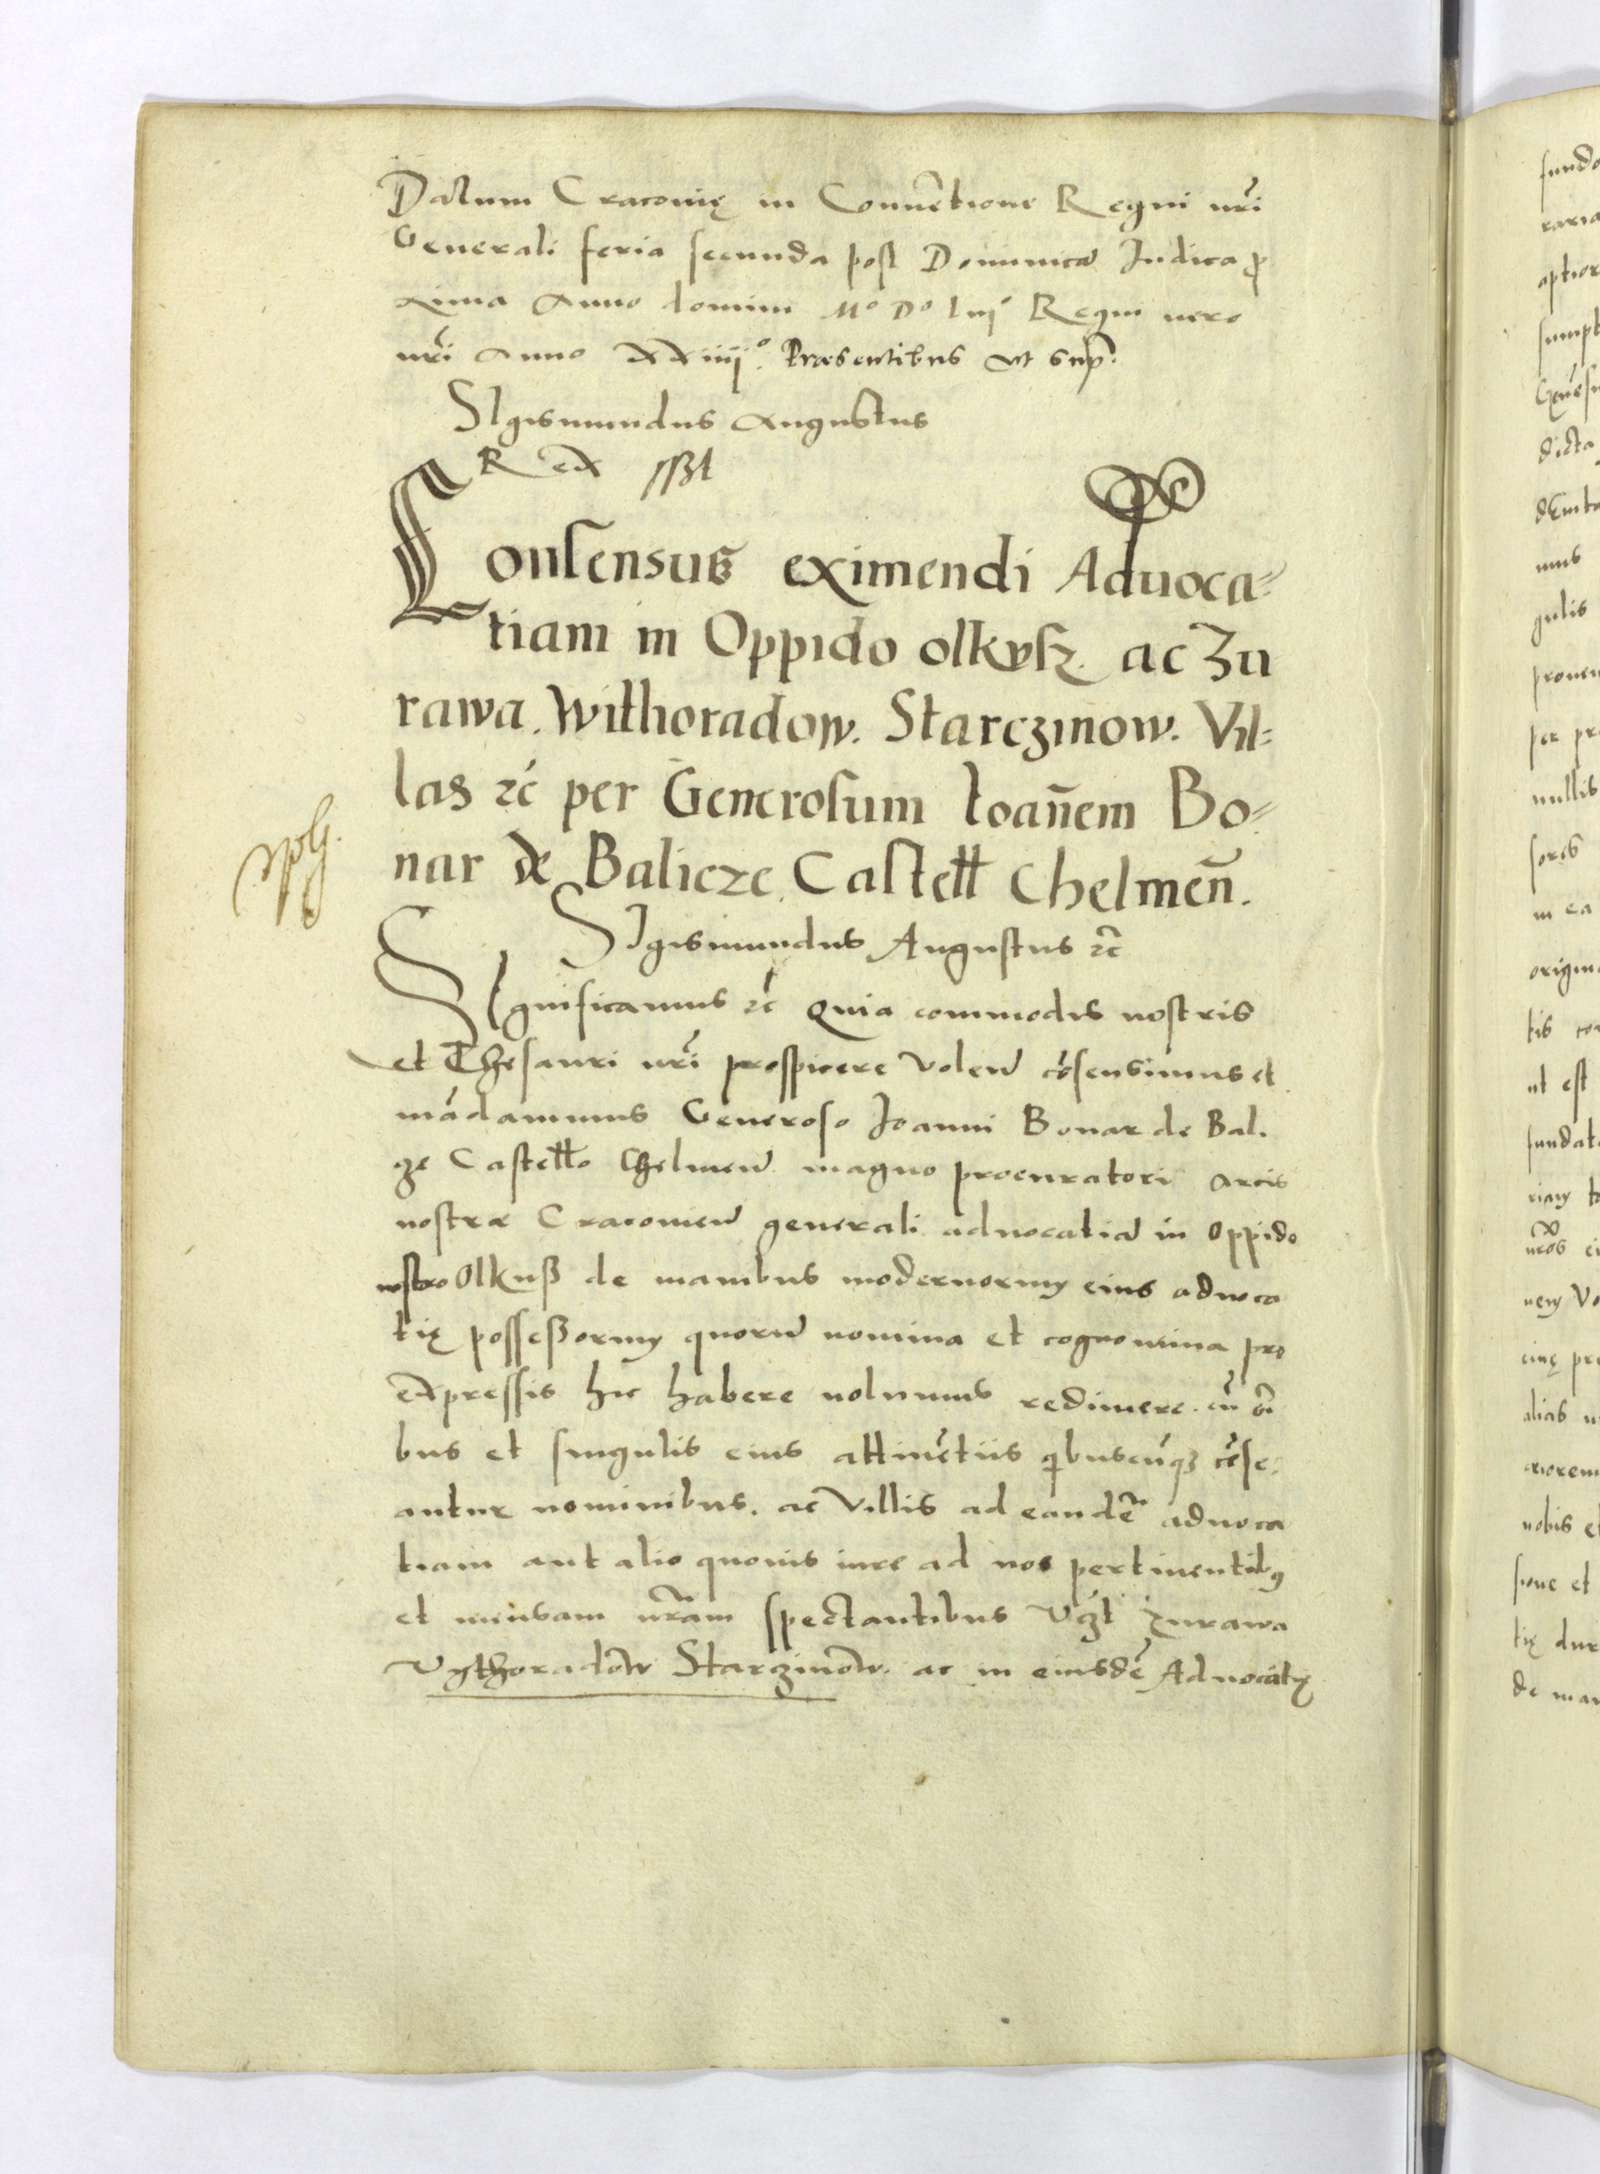 Datum Cracovię in Conue͂tione Regni nr͂i
Generali feria secunda post Dominica͂ Iudica ꝓ
xima Anno domini Mº Dº Liijº Regni uero
nr͂i Anno XXiiijº. Præsentibus ut sup͂.
SIgismundus Augustus
Rex sszt
Consensus eximendi Aduoca⸗
tiam in Oppido olkusz. ac Zu
rawa. Withoradow. Starczinow. Vil⸗
las ꝛc̃ per Generosum Ioan̄em Bo⸗
nar de Balicze Castell Chelmen̄.
SIgismundus Augustus ꝛc̃
SIgnificamus ꝛc̃ Quia commodis nostris
et Thesauri nr͂i prospicere Volen͂ co͂sensimus et
ma͂damimus Generoso Ioanni Bonar de Bal.
cze Castello Chelmen͂ magno procuratori Arcis
nostræ Cracovien͂ generali aduocatia͂ in Oppido
nostro Olkuß de manibus modernorum eius aduoca
tię possessorum quoru͂ nomina et cognomina pro
expressis hic habere uolumus redimere. cu͂ o͂i
bus et singulis eius attine͂tiis qibuscu͂qꝫ ce͂se⸗
antur nominibus. ac Villis ad eande͂ aduoca
tiam aut alio quouis iure ad nos pertinentibꝰ
et mensam nr͂am spectantibus Vꝫt Zurawa
Vythoradow Starczinow. ac in eiusde͂ Aduocatię